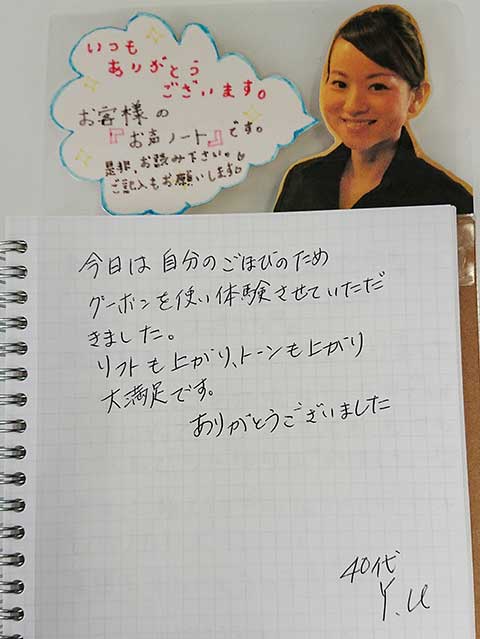 いつも
ありがとう
ございます。
お客様の
『お声ノート』です。
是非、お読み下さい。
ご記入もお願いします
今日は自分のごほびのため
クーポンを使い体験させていただ
きました。
リフトも上がり、トーンも上がり
大満足です。
ありがとうございました
40代
Y.U